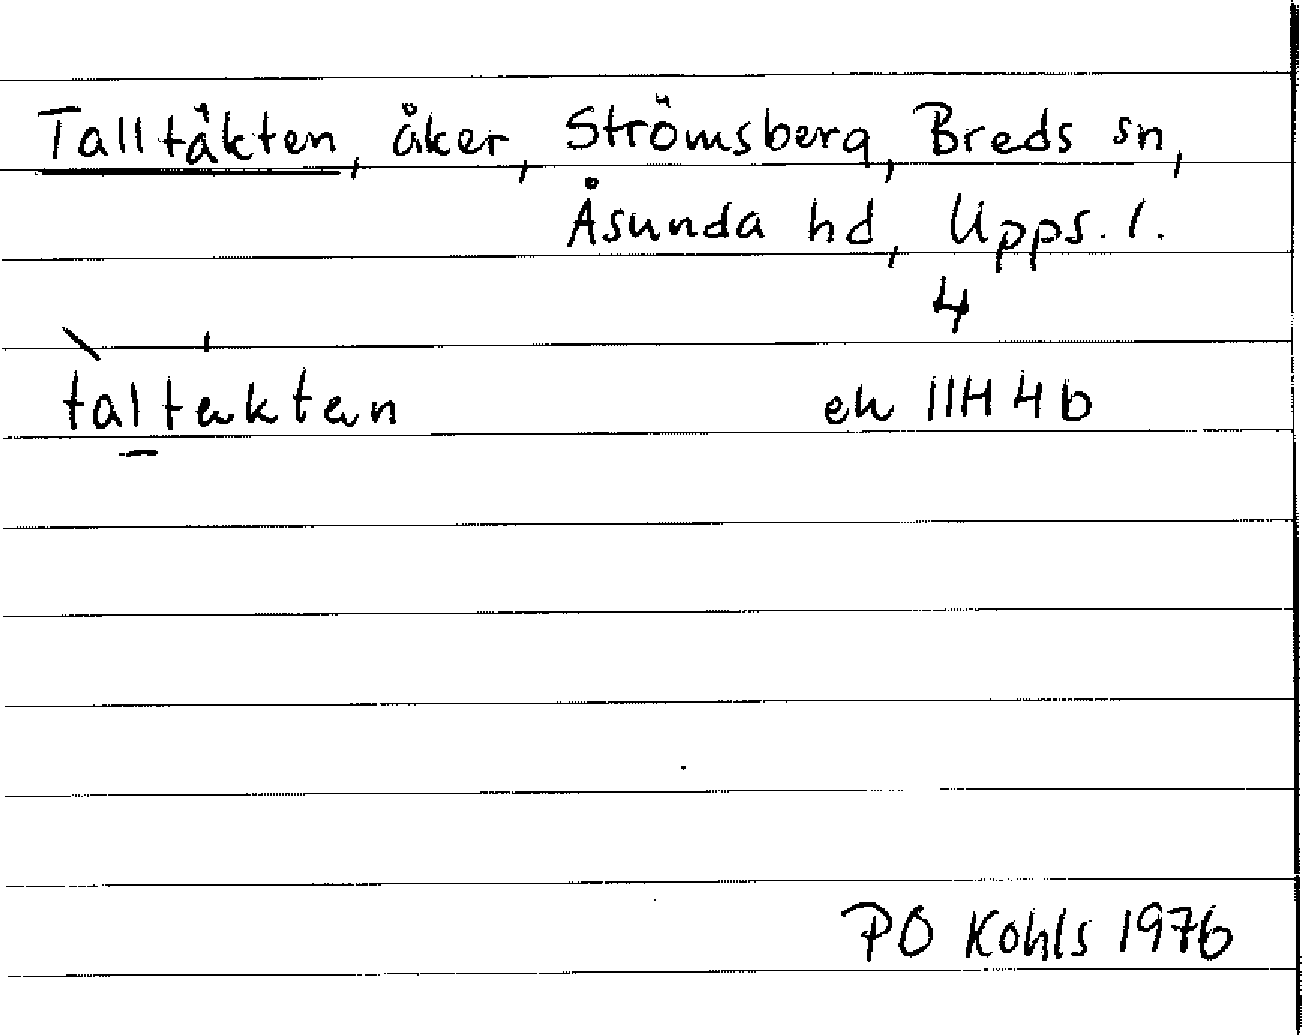 Talltäkten, åker, Strömsberg, Breds sn,
Åsunda hd, Upps. l.
4
tàltáktan
ek 11H 4b
PO Kohls 1976